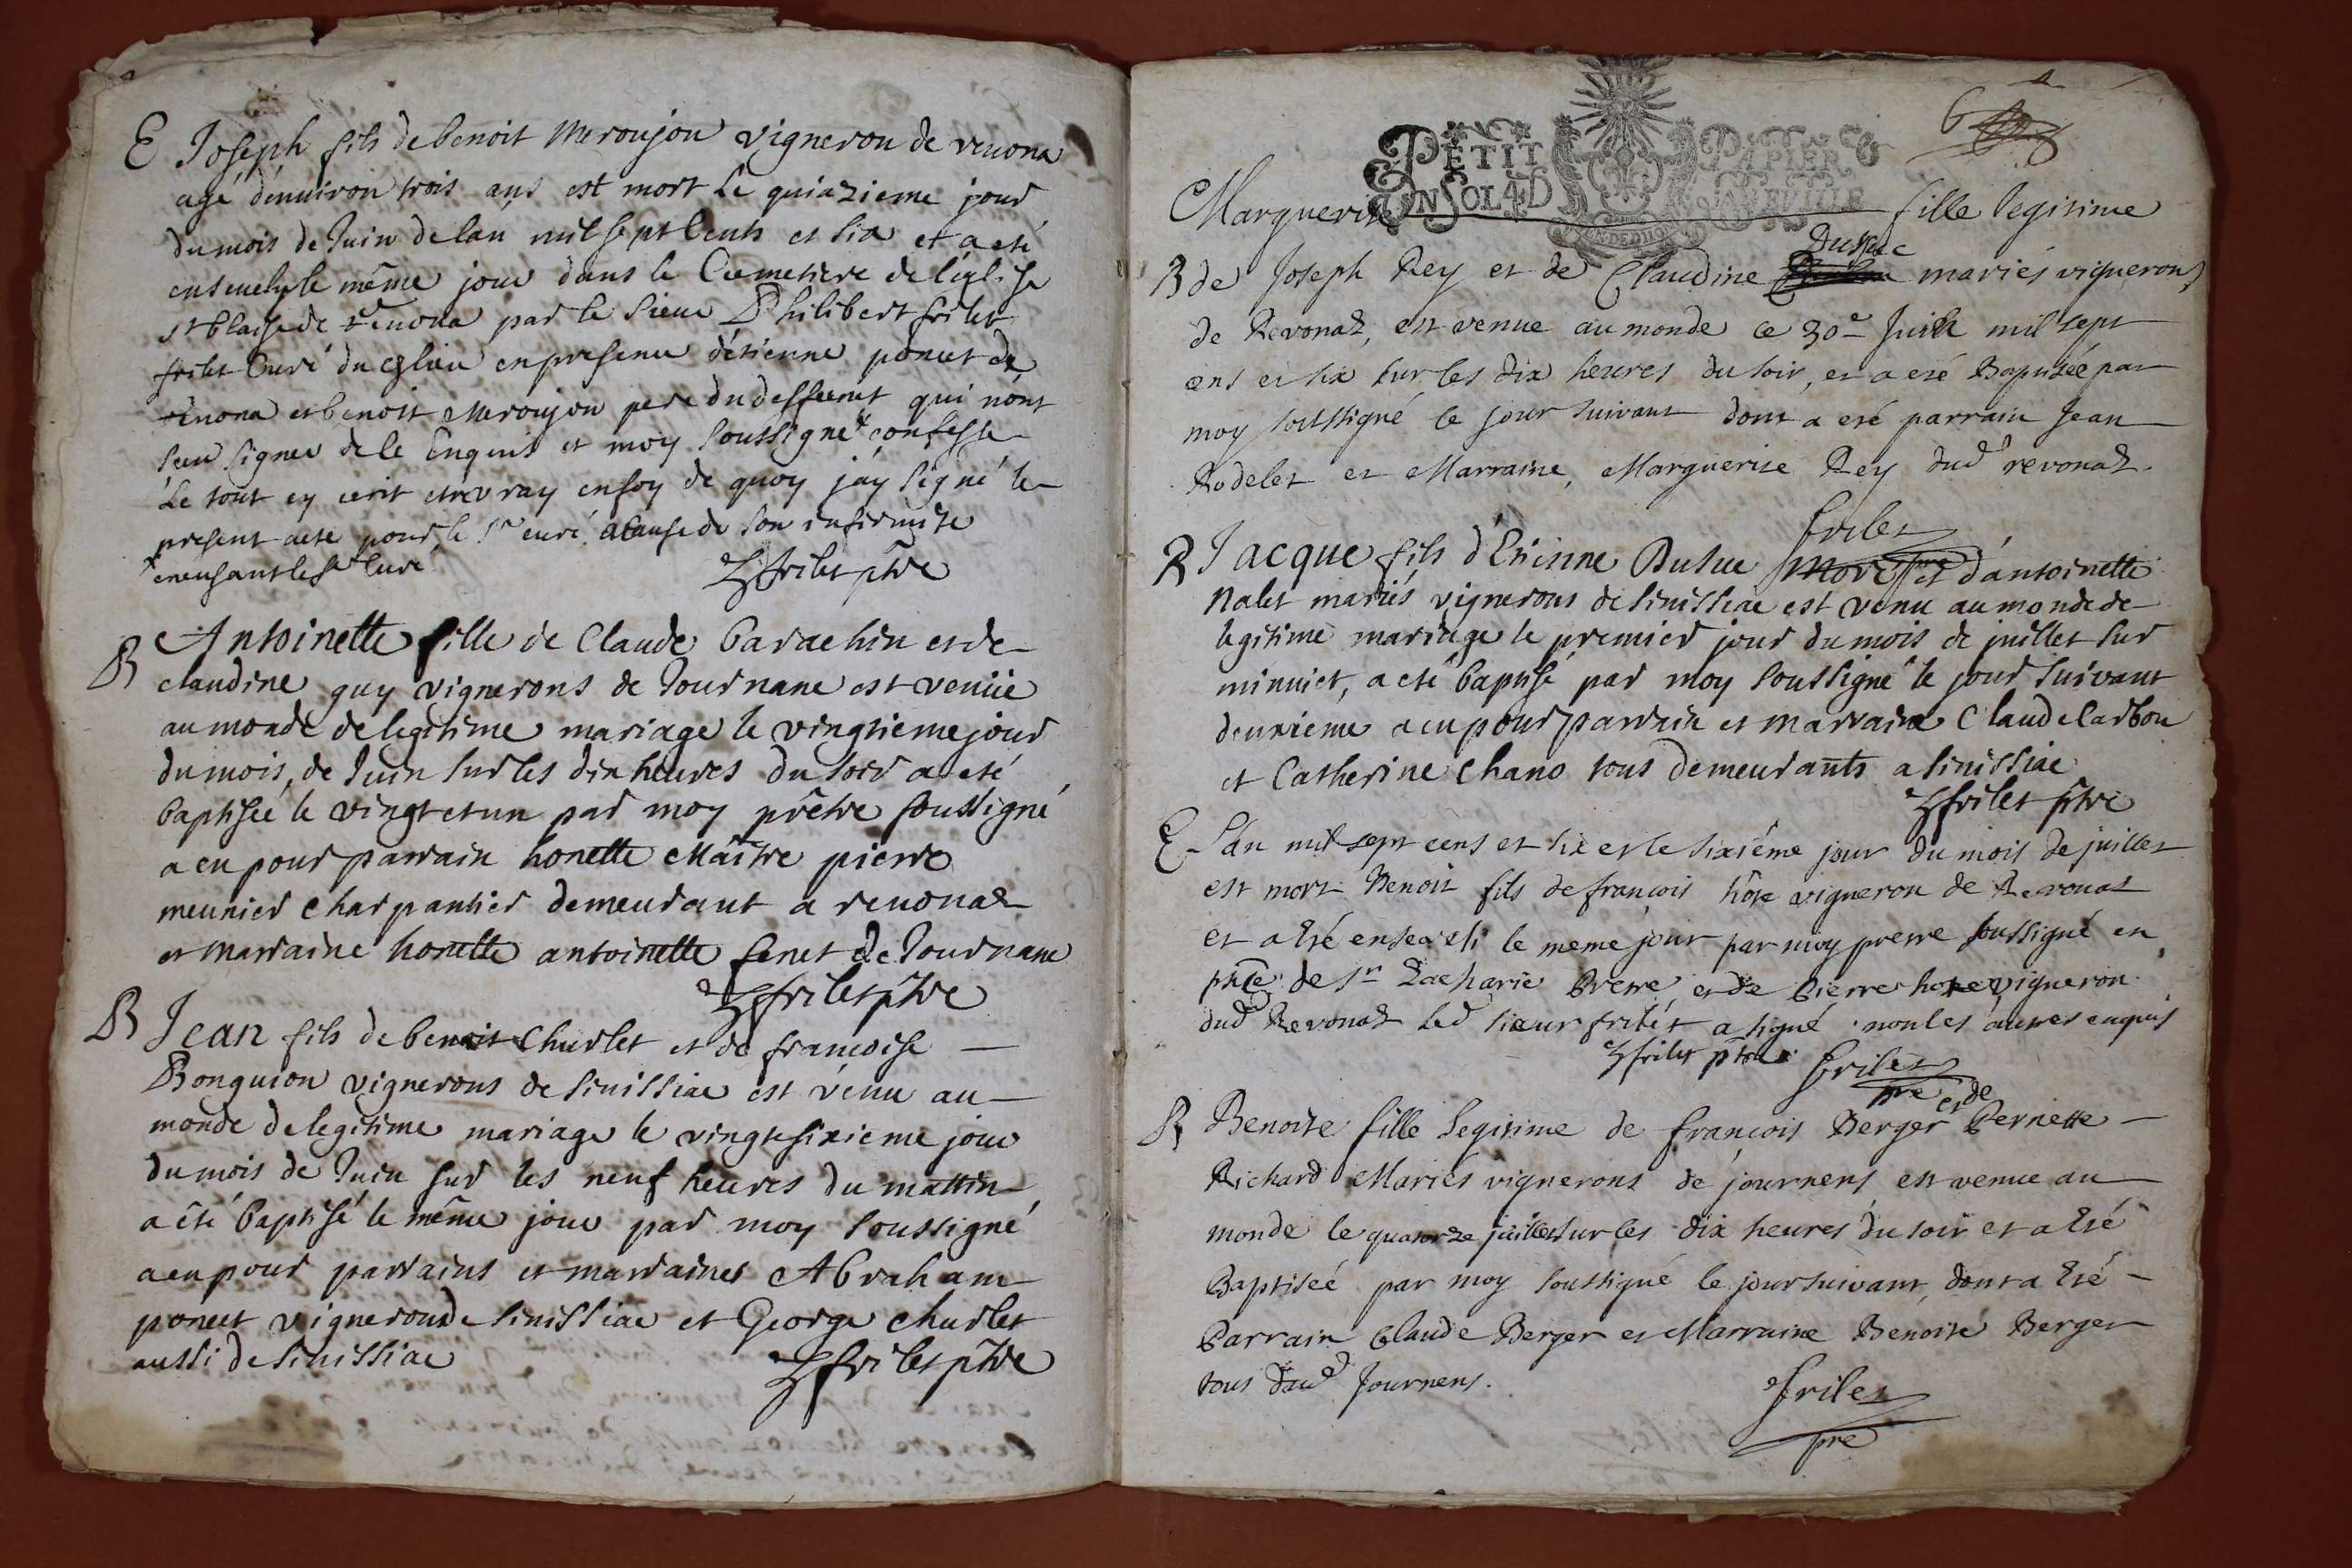 E Joseph fils de benoit Meroujon vigneron de revona
agé denuiron trois ans est mort le quinzieme jour
du mois de Juin de lan mil sept Cents et six et a eté
enseuely le même jour dans le Cemetiere de leglise
st blaise de revona par le sieur Philibert frilet
frilet Curé du lieu en presence détienne poncet de
revona et benoit Meroujon pere du deffunct qui n'ont
sceu signer de le Enquis et moy soussigné confesse
Le tout cy ecrit etre vray en foy de quoy jáy signé le
present acte pour le Sr curé acause de son infirmité
frilet ptre
B Antoinette fille de Claude barachin et de
claudine guy vignerons de Journane est venüe
au monde de legitime mariage le vingtieme jour
du mois de Juin sur les dix heures du soir a eté
baptisée le vingt et un par moy prêtre soussigné
a eu pour parrain honette Maître pierre
meunier charpantier demeurant a revonaz
et marraine honette antoinette fenet de Journane
frilet ptre
B Jean fils de benoit Churlet et de francoise
Bonguion vignerons de sinissiac est venu au
monde de legitime mariage le vingt sixieme jour
du mois de Juin sur les neuf heures du mattin
a êté baptisé le même jour par moy soussigné
a eu pour parrains et marraines Abraham
poncet vigneron de sinissiac et George churlet
aussi de sinissiac frilet ptre
6
PETIT PAPIER
UN SOL 4D LA FEUILLE
Marguerite fille legitime
dusuc
B de Joseph Rey et de Claudine mariés vignerons
de Revonaz, est venue au monde ce 30e Juin mil sept
cens et six sur les dix heures du soir, et a eté Baptizée par
moy soussigné le jour suivant dont a eté parrain Jean
Rodelet et Marraine, Marguerite Rey dud revonaz.
frilet
B Jacque fils d'Etienne Dusuc et dántoinette
Nalet mariés vignerons de sinissiac est venu au monde de
legitime mariage le premier jour du mois de juillet sur
minuict, a eté baptisé par moy soussigné le jour suivant
deuxieme a eu pour parrain et marraine Claude Carbon
et Catherine Chano tous demeurants a sinissiac
frilet ptre
E L'an mil sept cens et six et le sixiéme jour du mois de juillet
est mort Benoit fils de françois hôte vigneron de Revonat
et a êté enseveli le meme jour par moy pretre soussigné en
pnce de sr Zacharie Brette et de Pierre hote vigneron
dud Revonaz led sieur frilet a signé non les autres enquis
frilet ptre frilet
pre
et de
B Benoite fille legitime de françois Berger Pernette
Richard Mariés vignerons de journens est venue au
monde le quatorze juillet sur les dix heures du soir et a êté
Baptiséé par moy soussigné le jour suivant, dont a êté
Parrain Claude Berger et Marraine Benoite Berger
tous dud Journens.
frilet
pre